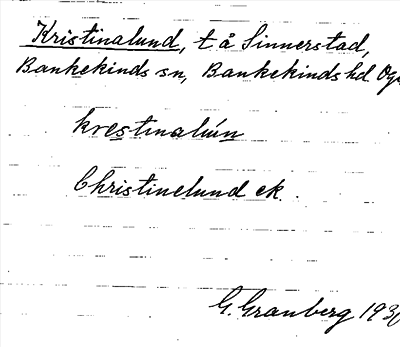 Kristinalund, t å Sinnerstad,
Bankekinds sn, Bankekinds hd Ög
krestinalún
Christinelund ek.
G. Granberg 193